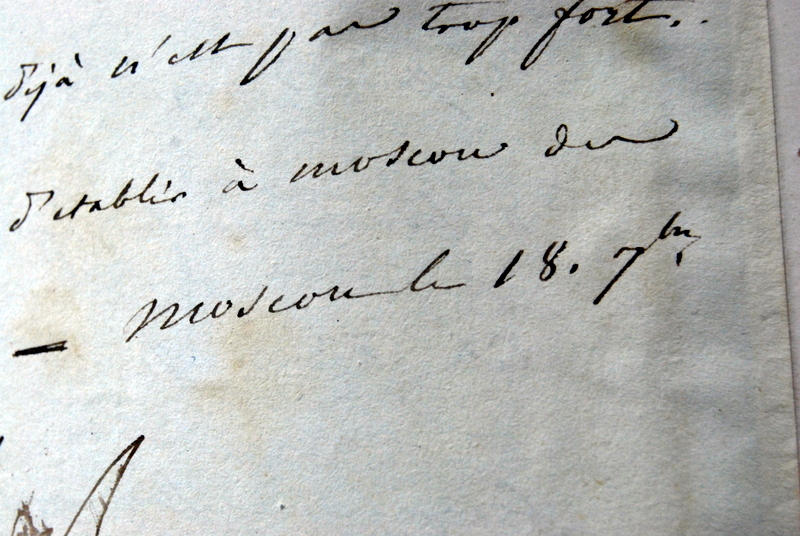 déjà n'est pas trop fort.
d'etablir à moscou des
— Moscou le 18. 7bre